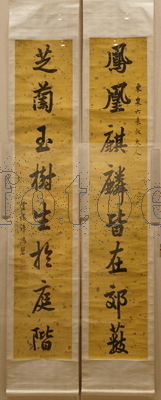 鳳凰麒麟皆在郊藪
芝蘭玉樹生於庭階